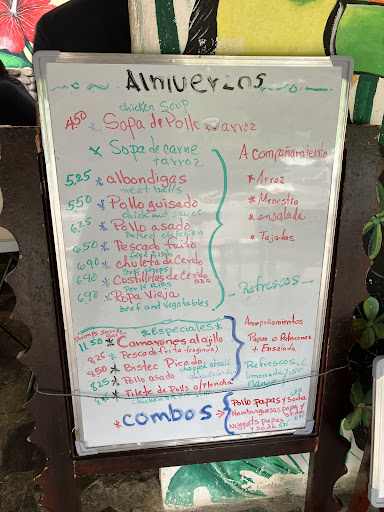 Almuerzos
chicken soup
4.50 * Sopa de Pollo + arroz
* Sopa de carne
+ arroz
5.25 * albondigas
meat bells
5.50 * Pollo guisado
chick and sauce
6.75 * Pollo asado
Baked chicken
6.50 * Pescado frito
Fried Fish
6.90 * chuleta de Cerdo
Pork chops
6.90 * Costillitas de Cerdo
Pork Ribs
6.90 * Ropa Vieja
beef and vegetables
Acompañamiento
* Arroz
* Menestra
* ensalada
* Tajadas
- Refrescos -
* Especiales *
11.50 * Camarones al ajillo
8.25 * Pescado frito (corvina)
8.50 * Bistec Picado
chopped steak
8.25 * Pollo asado
* Filete de Pollo a/plancha
Acompañamientos
Papas o Patacones
+ Ensalada
Refrescos
limonada
* COMBOS
Pollo papas y soda
Hamburguesa papa y
Nuggets papas
+ soda